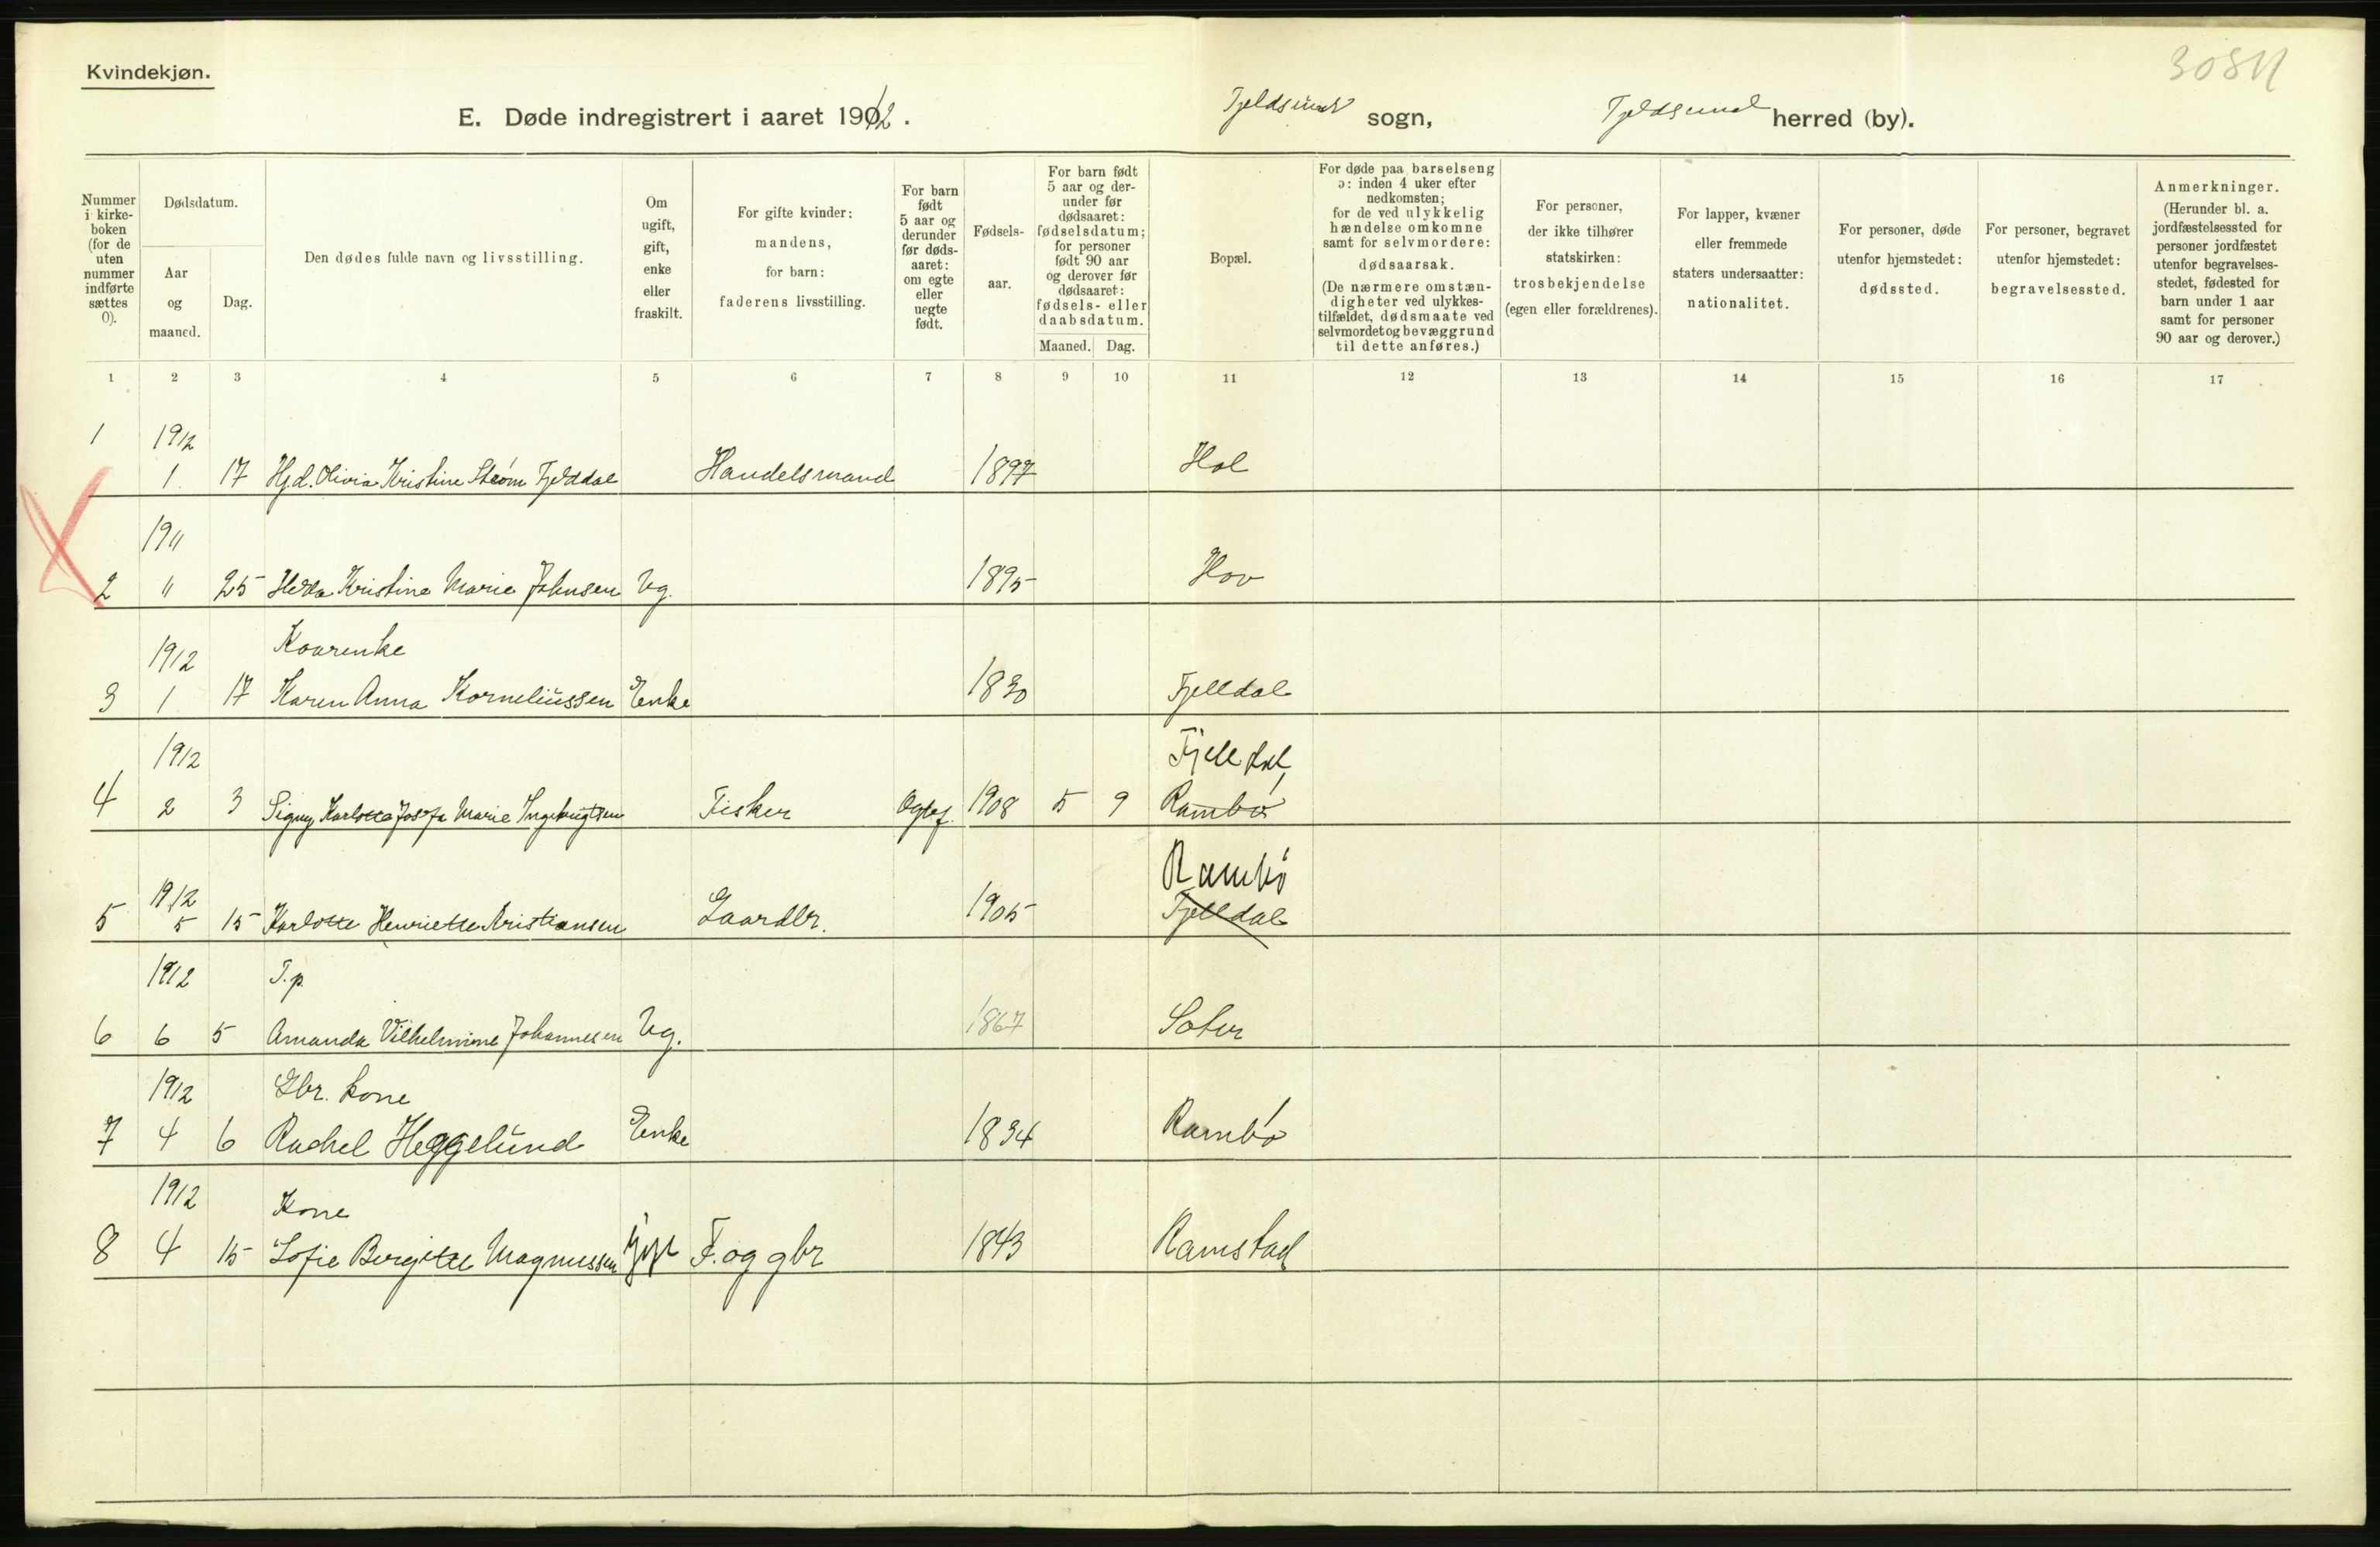 Kvindekjøn.
3084
E. Døde indregistrert i aaret 1912. Tjeldsund sogn, Tjeldsund herred (by).
Nummer i kirkeboken (for de uten nummer indførte sættes 0).
Dødsdatum.
Aar og maaned.
Dag.
Den dødes fulde navn og livsstilling.
Om ugift, gift, enke eller fraskilt.
For gifte kvinder: mandens, for barn: faderens livsstilling.
For barn født 5 aar og derunder før dødsaaret: om egte eller uegte født.
Fødselsaar.
For barn født 5 aar og derunder før dødsaaret: fødselsdatum; for personer født 90 aar og derover før dødsaaret: fødsels- eller daabsdatum.
Maaned. Dag.
Bopæl.
For døde paa barselseng ɔ: inden 4 uker efter nedkomsten; for de ved ulykkelig hændelse omkomne samt for selvmordere: dødsaarsak. (De nærmere omstændigheter ved ulykkestilfældet, dødsmaate ved selvmordet og bevæggrund til dette anføres.)
For personer, der ikke tilhører statskirken: trosbekjendelse (egen eller forældrenes).
For lapper, kvæner eller fremmede staters undersaatter: nationalitet.
For personer, døde utenfor hjemstedet: dødssted.
For personer, begravet utenfor hjemstedet: begravelsessted.
Anmerkninger. (Herunder bl. a. jordfæstelsessted for personer jordfæstet utenfor begravelsesstedet, fødested for barn under 1 aar samt for personer 90 aar og derover.)
1 2 3 4 5 6 7 8 9 10 11 12 13 14 15 16 17
1 1912
1. 17 Hgd. Olivia Kristine Strøm Fjelddal Handelsmand 1897 Hol
1911
2 11 25 Helda Kristine Marie Johnsen Ug. 1895 Hov
1912 Kaarenke
3 1 17 Karen Anna Korneliussen Enke 1830 Fjelldal
1912 Fjelldal
4 2 3 Signy Karlotta Josefa Marie Ingebrigtsen Fisker Egtef. 1908 5 9 Rambø
1912 Rambø
5 5 15 Karlotte Henriette Kristiansen Gaardbr. 1905 Fjelldal
1912 T.p.
6 6 5 Amanda Vilhelmine Johannesen Ug. 1867
1912 Gbr. kone
7 4 6 Rachel Heggelund Enke 1834 Rambø
1912 Kone
8 4 15 Sofie Bergitte Magnussen gift F. og gbr 1843 Ramstad